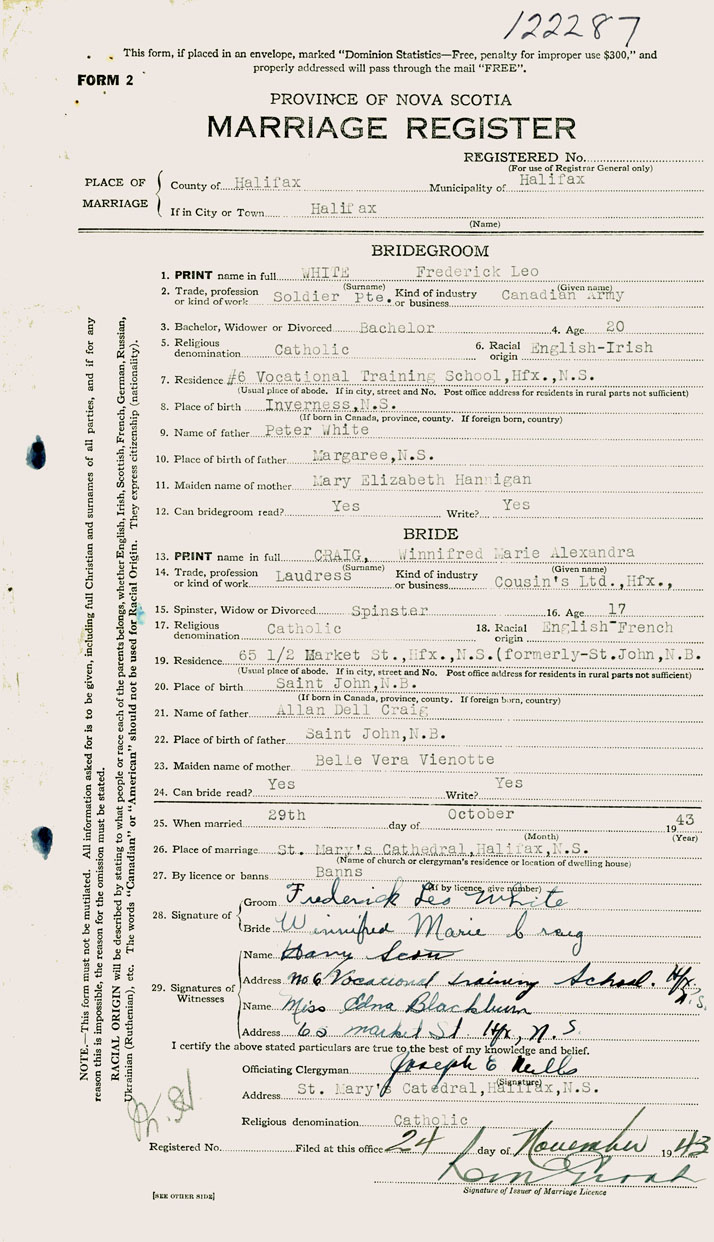 122287
This form, if placed in an envelope, marked “Dominion Statistics—Free, penalty for improper use $300,” and
properly addressed will pass through the mail “FREE”.
FORM 2
PROVINCE OF NOVA SCOTIA
MARRIAGE REGISTER
REGISTERED No.
(For use of Registrar General only)
PLACE OF MARRIAGE
County of Halifax Municipality of Halifax
If in City or Town Halifax
(Name)
BRIDEGROOM
1. PRINT name in full WHITE Frederick Leo
(Surname) (Given name)
2. Trade, profession or kind of work Soldier Pte. Kind of industry or business Canadian Army
3. Bachelor, Widower or Divorced Bachelor 4. Age 20
5. Religious denomination Catholic 6. Racial origin English-Irish
7. Residence #6 Vocational Training School,Hfx.,N.S.
(Usual place of abode. If in city, street and No. Post office address for residents in rural parts not sufficient)
8. Place of birth Inverness,N.S.
(If born in Canada, province, county. If foreign born, country)
9. Name of father Peter White
10. Place of birth of father Margaree,N.S.
11. Maiden name of mother Mary Elizabeth Hannigan
12. Can bridegroom read? Yes Write? Yes
BRIDE
13. PRINT name in full CRAIG, Winnifred Marie Alexandra
(Surname) (Given name)
14. Trade, profession or kind of work Laudress Kind of industry or business Cousin's Ltd.,Hfx.,
15. Spinster, Widow or Divorced Spinster 16. Age 17
17. Religious denomination Catholic 18. Racial origin English-French
19. Residence 65 1/2 Market St.,Hfx.,N.S.(formerly-St.John,N.B.
(Usual place of abode. If in city, street and No. Post office address for residents in rural parts not sufficient)
20. Place of birth Saint John,N.B.
(If born in Canada, province, county. If foreign born, country)
21. Name of father Allan Dell Craig
22. Place of birth of father Saint John,N.B.
23. Maiden name of mother Belle Vera Vienotte
24. Can bride read? Yes Write? Yes
25. When married 29th day of October 1943
(Month) (Year)
26. Place of marriage St. Mary's Cathedral,Halifax,N.S.
(Name of church or clergyman's residence or location of dwelling house)
27. By licence or banns Banns
(If by licence, give number)
28. Signature of
Groom Frederick Leo White
Bride Winnifred Marie Craig
29. Signatures of Witnesses
Name Harry
Address No 6 Vocational training School. Hfx N.S.
Name Miss Edna Blackburn
Address 65 market St. Hfx, N.S.
I certify the above stated particulars are true to the best of my knowledge and belief.
Officiating Clergyman Joseph E Mills
(Signature)
Address St. Mary's Catedral,Halifax,N.S.
Religious denomination Catholic
Registered No. Filed at this office 24 day of November 1943
Signature of Issuer of Marriage Licence
[SEE OTHER SIDE]
NOTE.—This form must not be mutilated. All information asked for is to be given, including full Christian and surnames of all parties, and if for any
reason this is impossible, the reason for the omission must be stated.
RACIAL ORIGIN will be described by stating to what people or race each of the parents belongs, whether English, Irish, Scottish, French, German, Russian,
Ukrainian (Ruthenian), etc. The words “Canadian” or “American” should not be used for Racial Origin. They express citizenship (nationality).